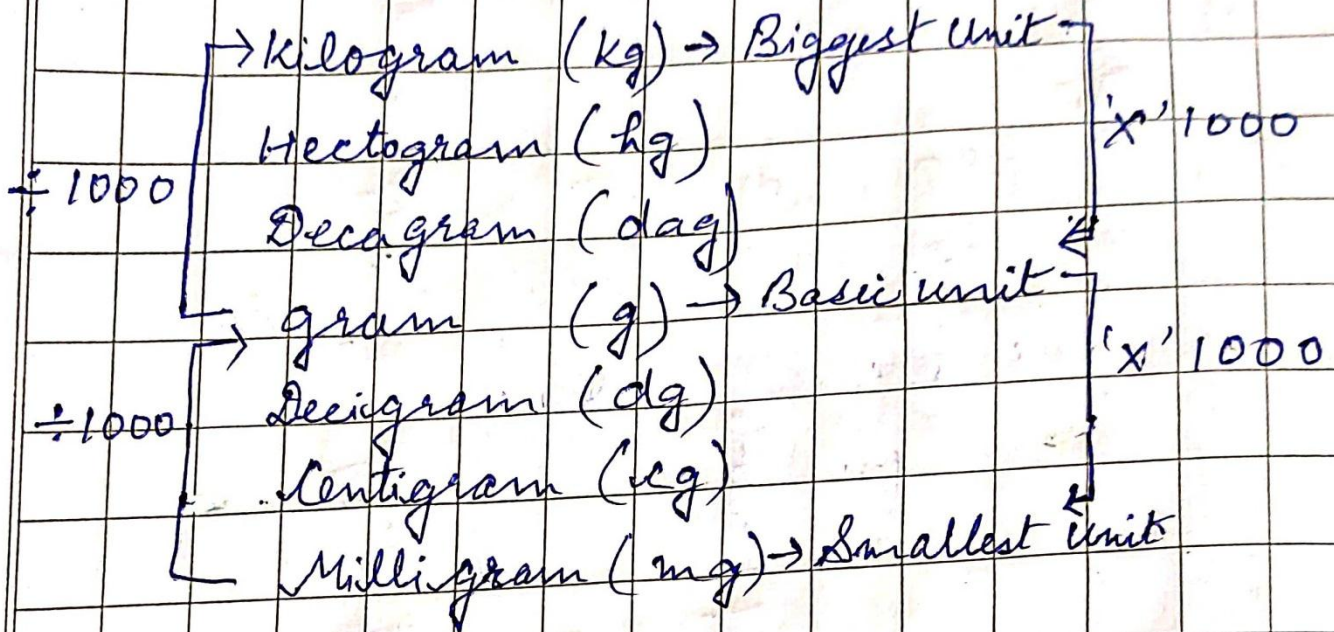 Kilogram (kg) → Biggest Unit
'x' 1000
Hectogram (hg)
÷ 1000
Decagram (dag)
gram (g) → Basic unit
'x' 1000
Decigram (dg)
÷1000
Centigram (cg)
Milligram (mg) → Smallest Unit